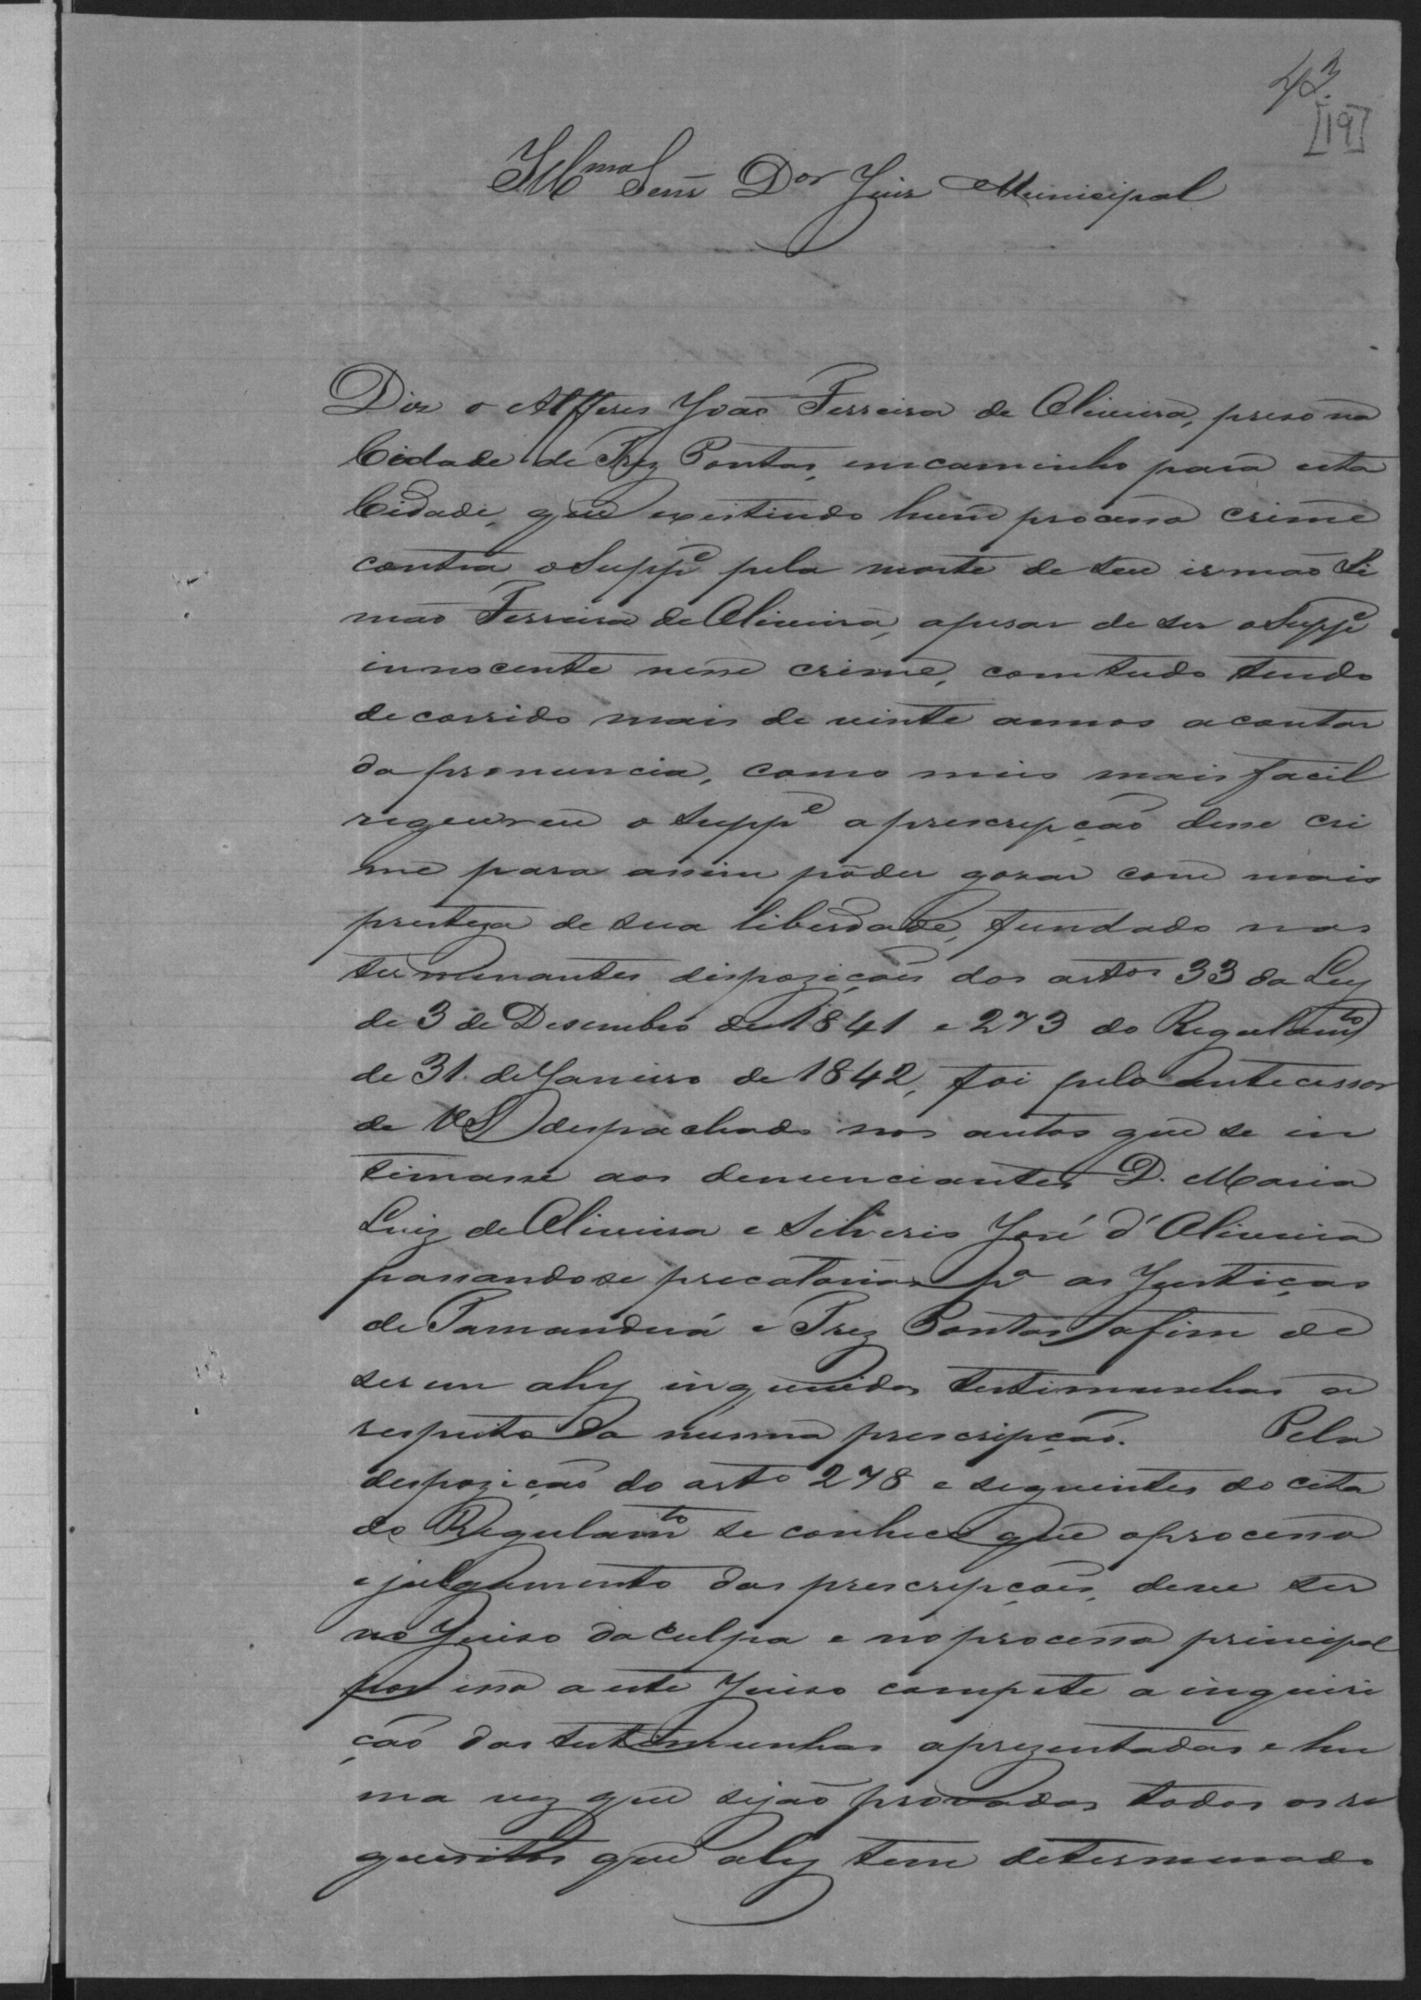 43
[19]
Illmo Senr Dor Juiz Municipal
Diz o Alfferes João Ferreira de Oliveira, preso na
Cidade de Trez Pontas, em caminho para esta
Cidade, que existindo hum processo crime
contra o Suppe pela morte de seu irmão Si
mão Ferreira de Oliveira, apesar de ser o Suppe
innocente nesse crime, com tudo tendo
decorrido mais de vinte annos a contar
da pronuncia, como meio mais facil
requereu o Suppe a prescripção desse cri
me para assim pòder gozar com mais
presteza de sua liberdade, fundado nas
terminantes dispozições dos artos 33 da Ley
de 3 de Desembro de 1841 e 273 do Regulamto
de 31 de Janeiro de 1842, foi pelo antecessor
de VS despachado nos autos que se in
timasse aos denunciantes D. Maria
Luiz de Oliveira e Silverio José d'Oliveira
passandose precatorias pa as Justiças
de Tamanduá e Trez Pontas afim de
serem ahy inqueridas testimunhas a
respeito da mesma prescripção. Pela
dispozição do arto 278 e seguintes do cita
do Regulamto se conhece que o processo
e julgamento das prescripções, deve ser
no Juiso da culpa e no processo principal
por isso a este Juiso compete a inquiri
ção das testemunhas aprezentadas e hu
ma vez que sejão provados todos os re
quesitos que ahy tem determinado